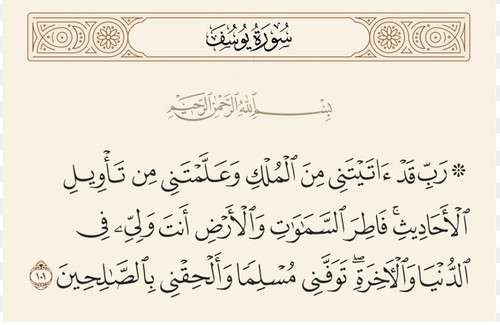 سُورَةُ يُوسُفَ
بِسْمِ ٱللَّهِ ٱلرَّحْمَٰنِ ٱلرَّحِيمِ
۞ رَبِّ قَدْ ءَاتَيْتَنِى مِنَ ٱلْمُلْكِ وَعَلَّمْتَنِى مِن تَأْوِيلِ
ٱلْأَحَادِيثِ ۚ فَاطِرَ ٱلسَّمَٰوَٰتِ وَٱلْأَرْضِ أَنتَ وَلِىِّۦ فِى
ٱلدُّنْيَا وَٱلْءَاخِرَةِ ۖ تَوَفَّنِى مُسْلِمًا وَأَلْحِقْنِى بِٱلصَّٰلِحِينَ ١٠١